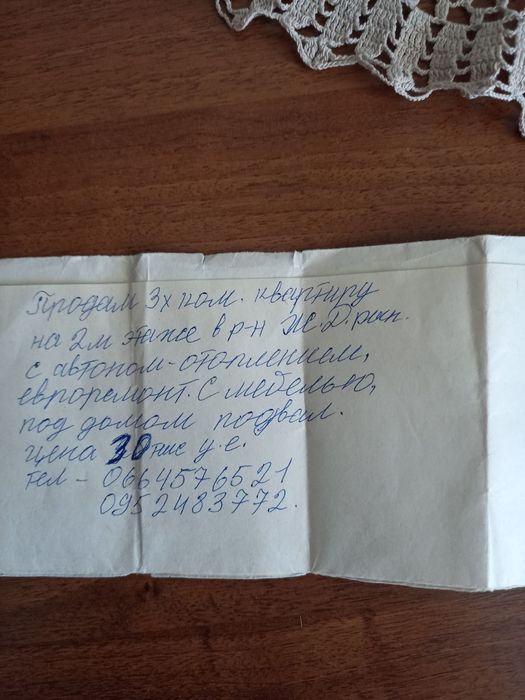 Продам 3х ком. квартиру
на 2м этаже в р-н Ж.Д. рын.
с автоном-отоплением,
евроремонт. С мебелью,
под домом подвал.
цена 30 тис у.е.
тел - 0664576521
0952483772.